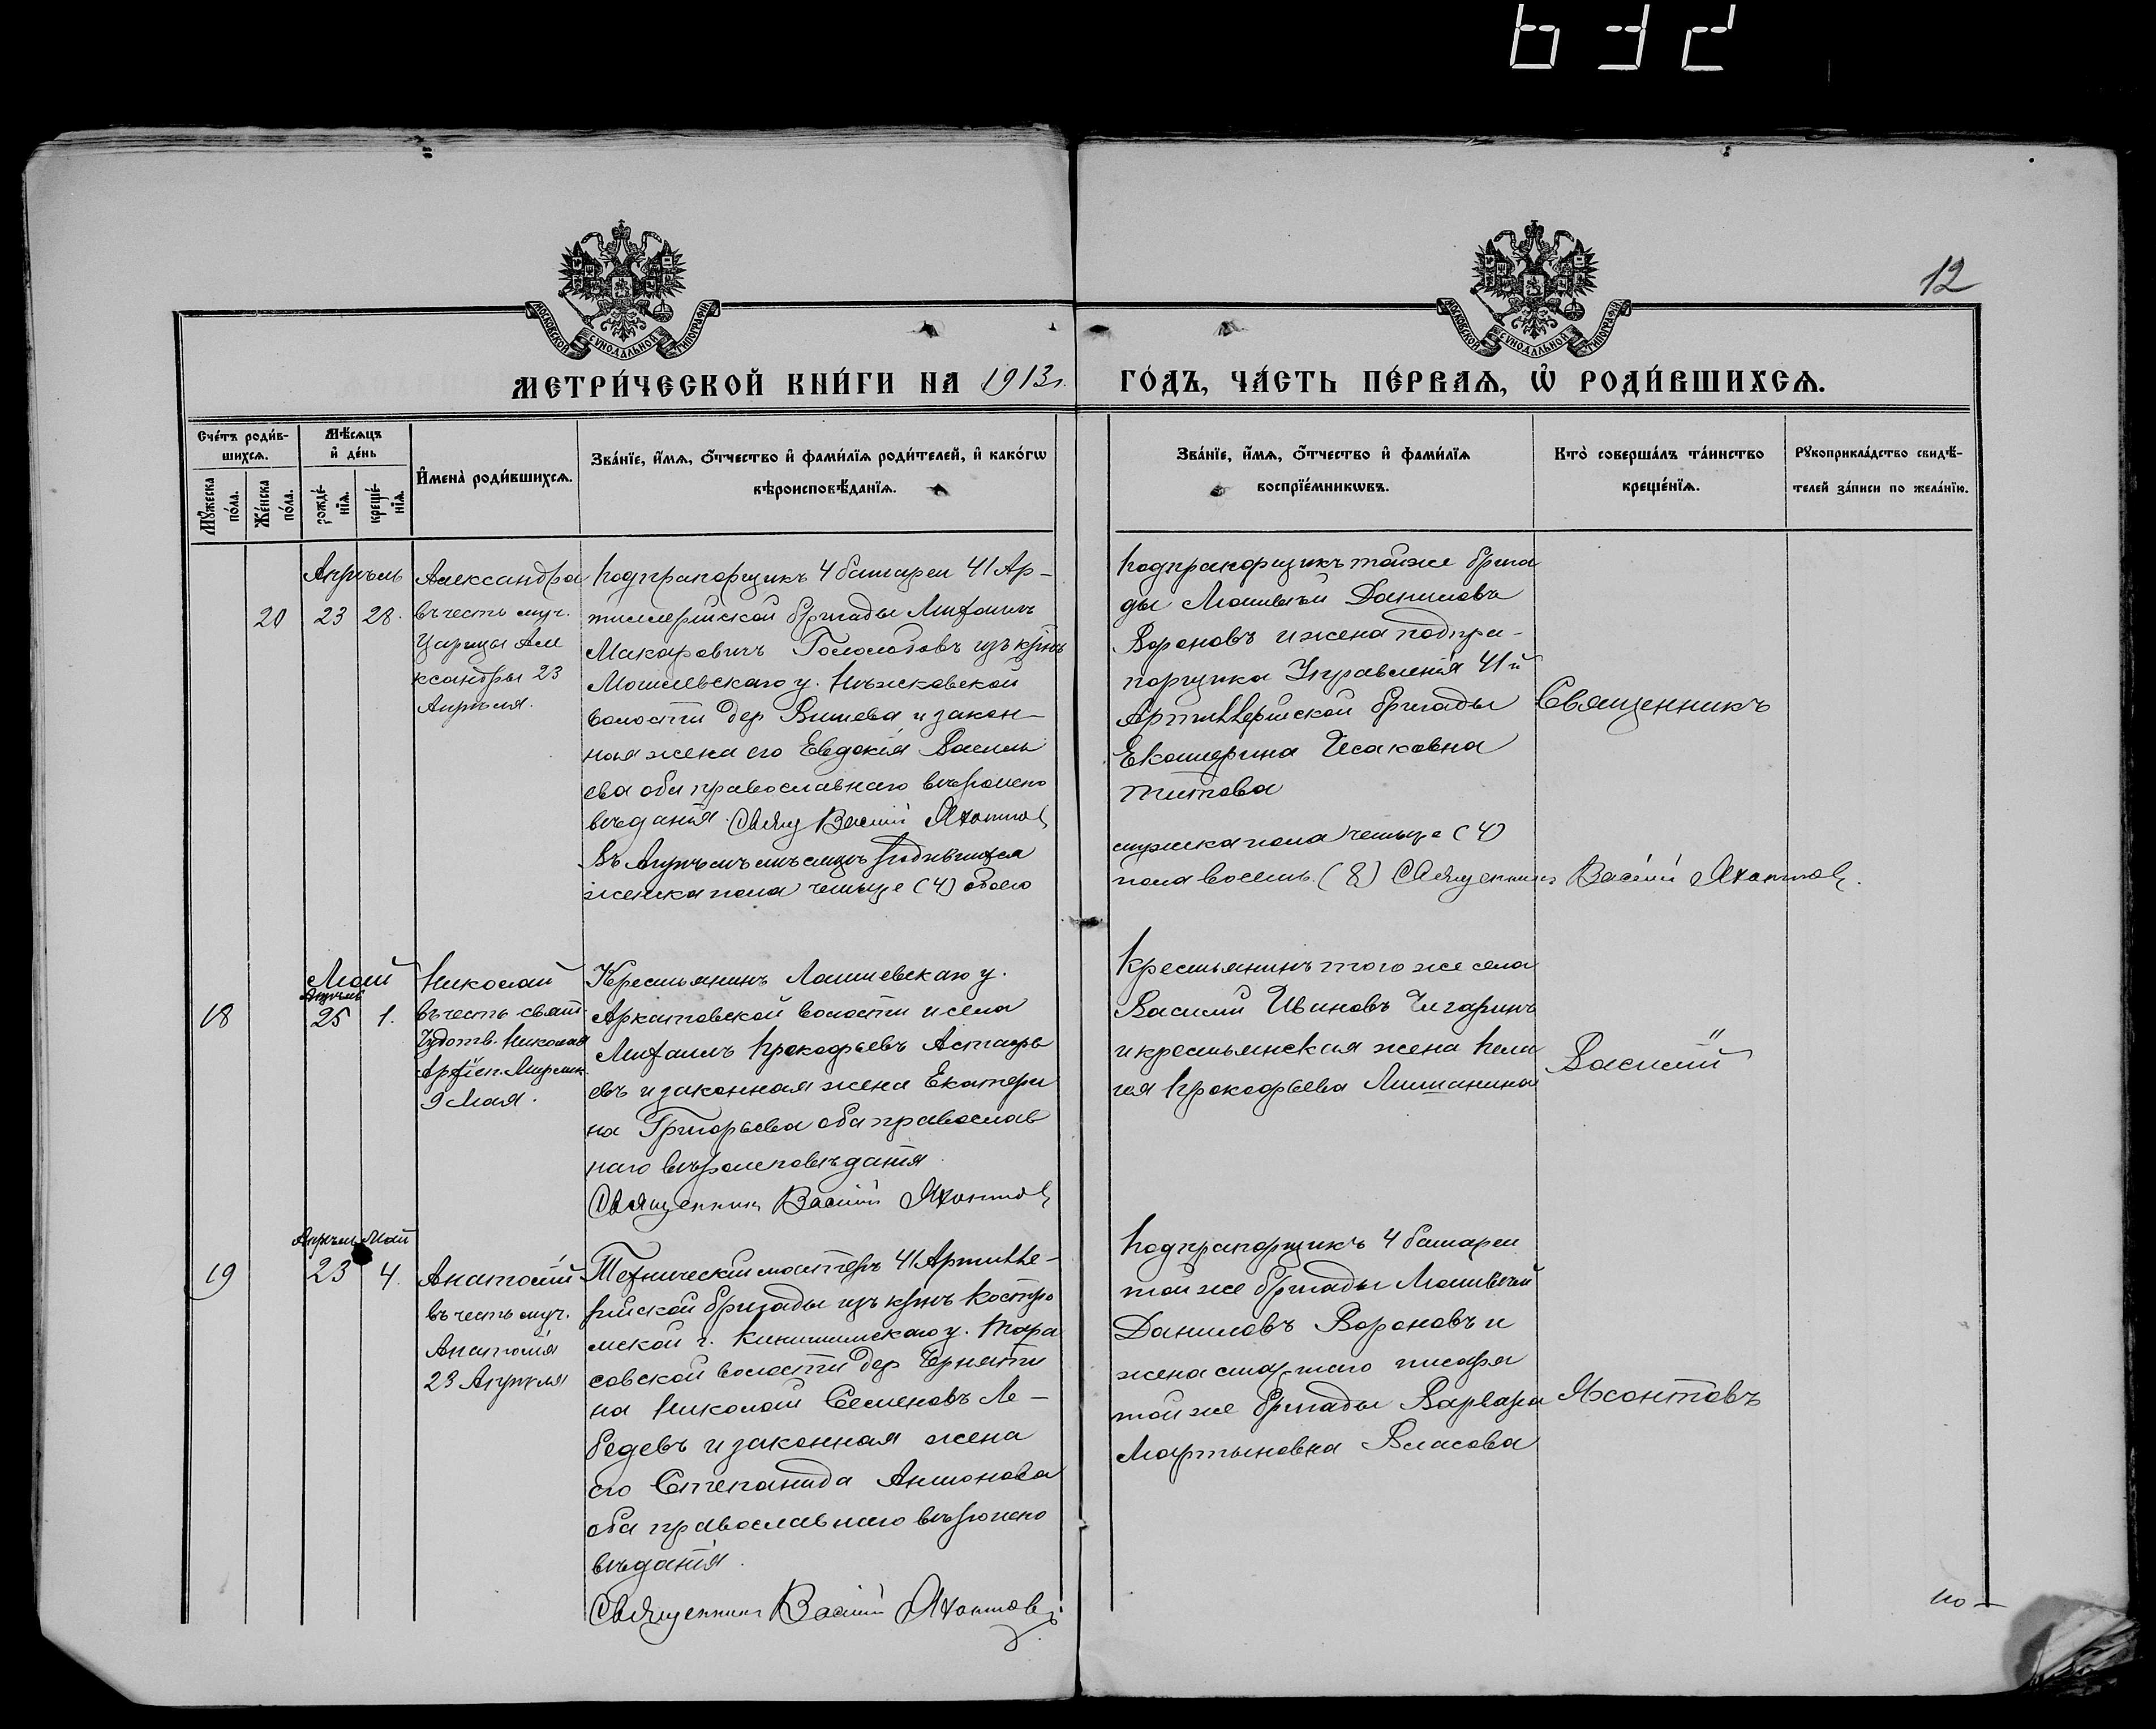 632
12
МОСКОВСКОЙ СѴНОДАЛЬНОЙ ТИПОГРАФІИ
МОСКОВСКОЙ СѴНОДАЛЬНОЙ ТИПОГРАФІИ
МЕТРИ́ЧЕСКОЙ КНИ́ГИ НА 1913г. ГО́ДЪ, ЧА́СТЬ ПЕ́РВАѦ, Ѡ҆ РОДИ́ВШИХСѦ.
Сче́тъ роди́в-
шихсѧ.
Мꙋ́жеска по́ла.
Же́нска по́ла.
Мѣ́сѧцъ
и҆ де́нь
рожде́-
нїѧ.
креще́-
нїѧ.
И҆мена̀ роди́вшихсѧ.
Зва́нїе, и҆́мѧ, ѻ҆́тчество и҆ фами́лїѧ роди́телей, и҆ како́гѡ
вѣроисповѣ́данїѧ.
Зва́нїе, и҆́мѧ, ѻ҆́тчество и҆ фами́лїѧ
воспрїе́мникѡвъ.
Кто̀ соверша́лъ та́инство
креще́нїѧ.
Рꙋкоприкла́дство свидѣ́-
телей за́писи по жела́нїю.
Апрѣль
20 23 28.
Александра
въ честь муч.
Царицы Але
ксандры 23
Апрѣля.
Подпрапорщикъ 4 батареи 41 Ар-
тиллерійской бригады Михаилъ
Макаровичъ Гололобовъ изъ крнъ
у.
волости дер. и закон-
ная жена его Евдокія Василь
ева оба православнаго вѣроиспо
вѣданія. Свящ Василій Яхонтовъ
Въ Апрѣлѣ мѣсяцѣ родившихся
женска пола четыре (4) обоего
Подпрапорщикъ той же брига
ды Матвѣй Даниловъ
Вороновъ и жена подпра-
порщика Управленія 41й
Артиллерійской бригады
Екатерина Исаковна
Титова
мужска пола четыре (4)
пола восемь (8) Священникъ Василій Яхонтовъ.
Священникъ
Май
Апрѣль
18 25 1.
Николай
въ честь свят.
Чудотв. Николая
Архіеп. Мирлик.
9 Мая.
Крестьянинъ Лаишевскаго у.
волости и села
Михаилъ Прокофьевъ Астафь
евъ и законная жена Екатери
на Григорьева оба православ
наго вѣроисповѣданія.
Священникъ Василій Яхонтовъ
Крестьянинъ того же села
Василій Ивановъ Чигаринъ
и крестьянская жена Пела
гея Прокофьева
Василій
Апрѣль Май
19 23 4.
Анатолій
въ честь муч.
Анатолія
23 Апрѣля
Техническій мастеръ 41 Артилле-
рійской бригады изъ крнъ Костро
мской г. Кинешемскаго у. Тара
совской волости дер.
на Николай Семеновъ Ле-
бедевъ и законная жена
его Степанида Антонова
оба православнаго вѣроиспо
вѣданія.
Священникъ Василій Яхонтовъ.
Подпрапорщикъ 4 батареи
той же бригады Матвѣй
Даниловъ Вороновъ и
жена старшаго писаря
той же бригады Варвара
Мартыновна Власова
Яхонтовъ
по-